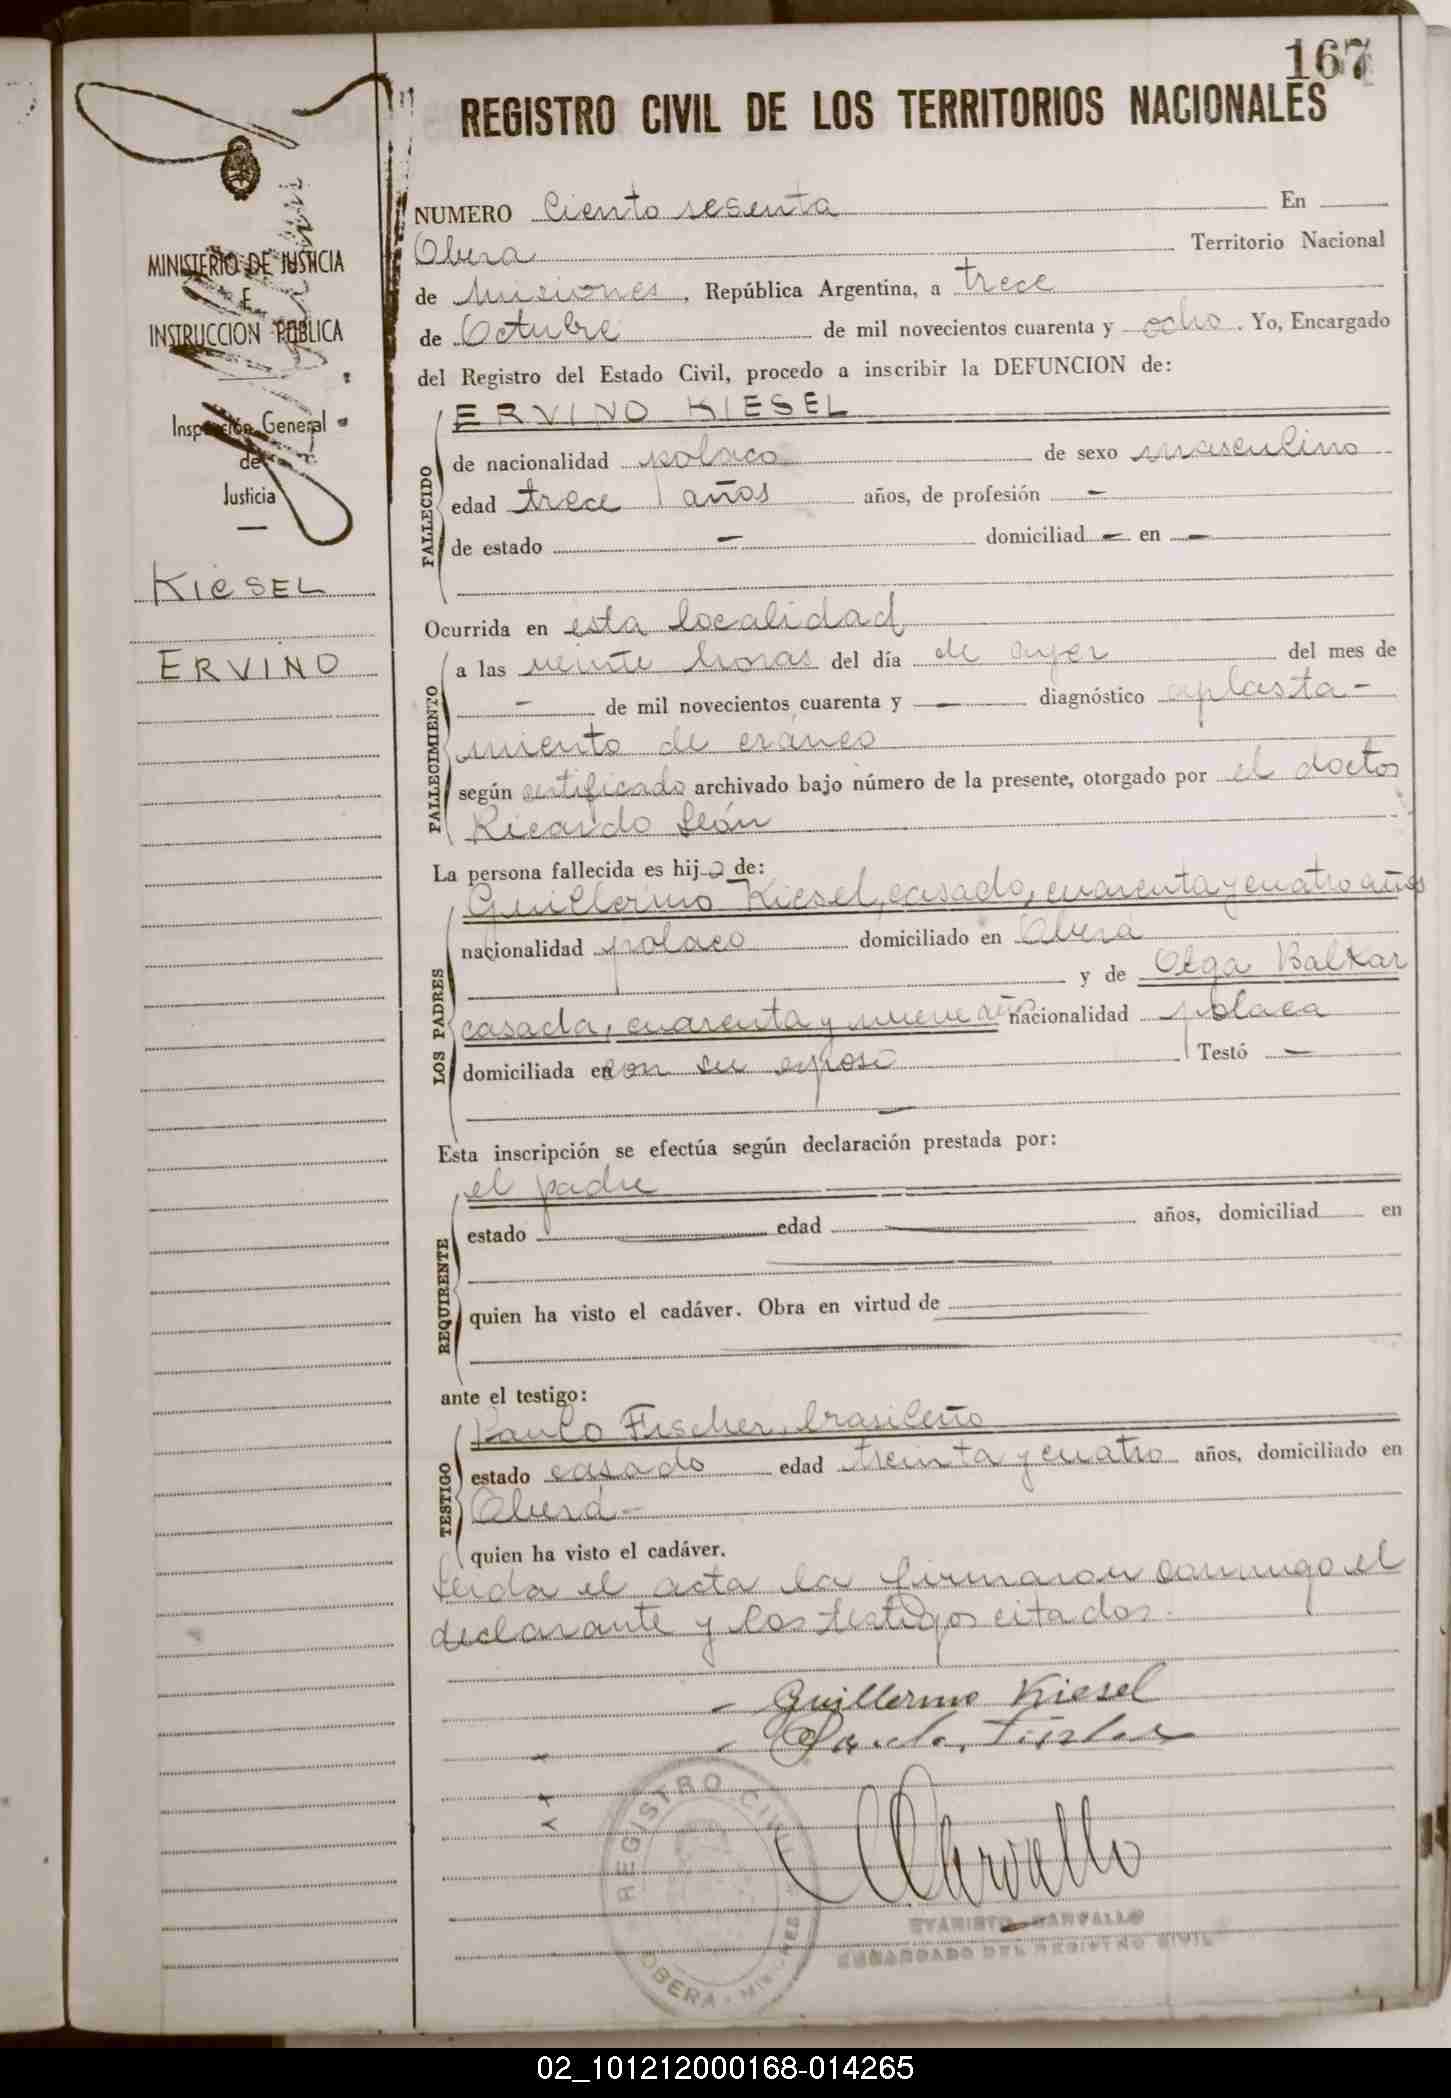 167
REGISTRO CIVIL DE LOS TERRITORIOS NACIONALES
MINISTERIO DE JUSTICIA
E
INSTRUCCION PUBLICA
Inspección General
de
Justicia
KIESEL
ERVINO
NUMERO Ciento sesenta En
Obera Territorio Nacional
de Misiones, República Argentina, a trece
de Octubre de mil novecientos cuarenta y ocho. Yo, Encargado
del Registro del Estado Civil, procedo a inscribir la DEFUNCION de:
FALLECIDO
ERVINO KIESEL
de nacionalidad polaco de sexo masculino
edad trece años años, de profesión -
de estado - domiciliad - en -
Ocurrida en esta localidad
FALLECIMIENTO
a las veinte horas del día de ayer del mes de
- de mil novecientos cuarenta y - diagnóstico aplasta-
miento de cráneo
según certificado archivado bajo número de la presente, otorgado por el doctor
Ricardo León
La persona fallecida es hijo de:
LOS PADRES
Guillermo Kiesel, casado, cuarenta y cuatro años
nacionalidad polaco domiciliado en Oberá
y de Olga Balkar
casada, cuarenta y nueve años nacionalidad polaca
domiciliada en con su esposo Testó -
Esta inscripción se efectúa según declaración prestada por:
REQUIRENTE
el padre
estado edad años, domiciliad en
quien ha visto el cadáver. Obra en virtud de
ante el testigo:
TESTIGO
Paulo Fischer, brasileño
estado casado edad treinta y cuatro años, domiciliado en
Oberá -
quien ha visto el cadáver.
Leida el acta la firmaron conmigo el
declarante y los testigos citados.
Guillermo Kiesel
Paulo Fischer
Carvallo
REGISTRO CIVIL
OBERA - MISIONES
EVARISTO CARVALLO
ENCARGADO DEL REGISTRO CIVIL
02_101212000168-014265